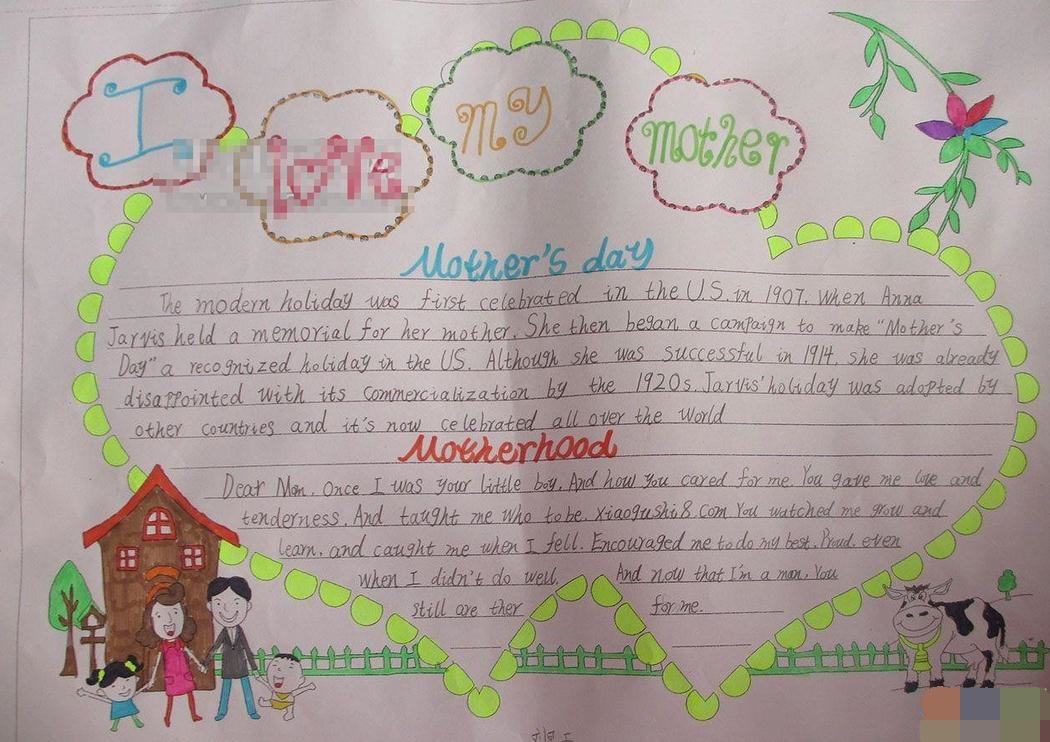 I love my mother
Mother's day
The modern holiday was first celebrated in the U.S. in 1907. When Anna
Jarvis held a memorial for her mother. She then began a campaign to make "Mother's
Day" a recognized holiday in the US. Although she was successful in 1914. she was already
disappointed with its commercialization by the 1920s. Jarvis' holiday was adopted by
other countries and it's now celebrated all over the world
Motherhood
Dear Mom. Once I was your little boy. And how you cared for me. You gave me love and
tenderness. And taught me who to be. xiaogushi8.com You watched me grow and
learn. and caught me when I fell. Encouraged me to do my best. Proud. even
when I didn't do well. And now that I'm a man. You
still are ther for me.